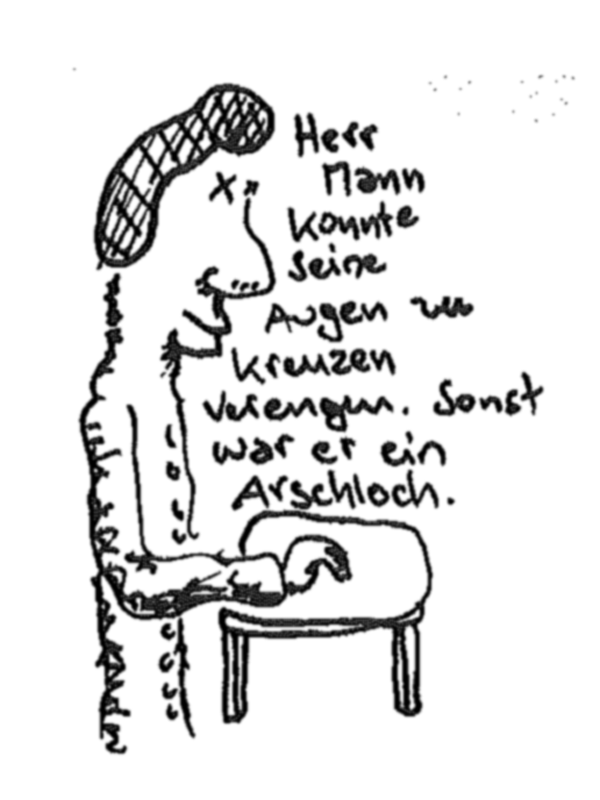 Herr
Mann
konnte
seine
Augen zu
kreuzen
verengen. Sonst
war er ein
Arschloch.